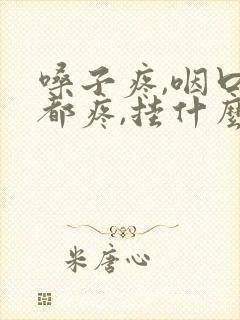 嗓子疼,咽口
都疼,挂什麼
米唐心